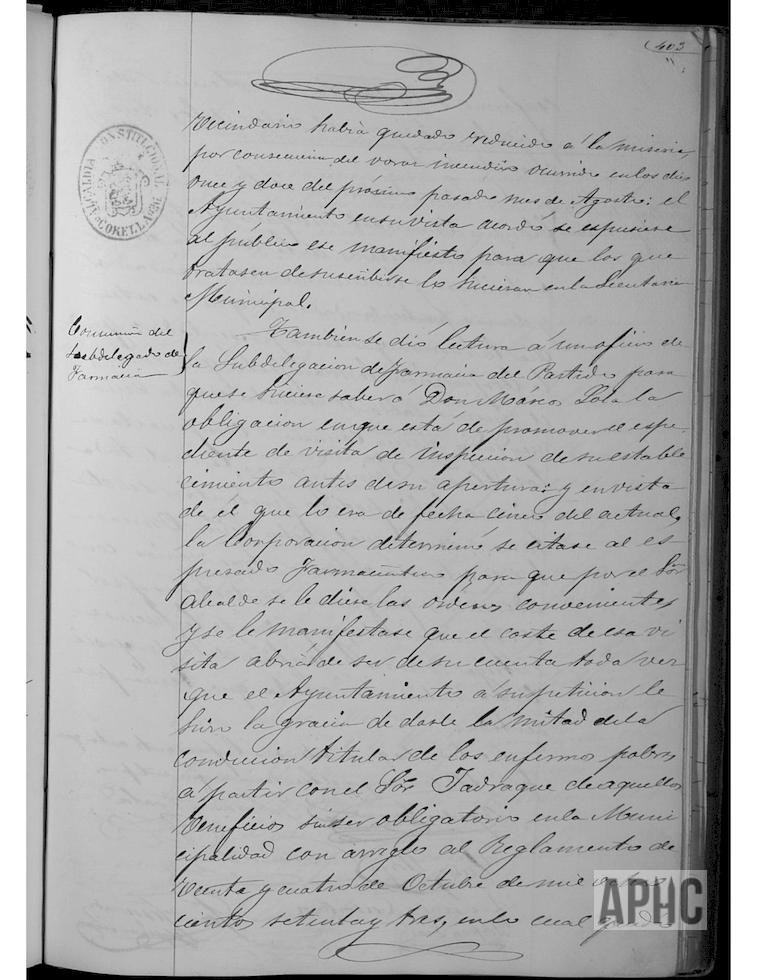 403
ALCALDIA CONSTITUCIONAL DE CORELLA
Vecindario habia quedado reducido á la miseria,
por consecuencia del voraz incendio ocurrido en los dias
once y doce del próximo pasado mes de Agosto: el
Ayuntamiento en su vista acordó se espusiese
al público ese manifiesto para que los que
tratasen de suscribirse lo hicieran en la Secretaria
Municipal.
Comunion del
Subdelegado de
Farmacia
Tambien se dió lectura á un oficio de
la Subdelegacion de Farmacia del Partido para
que se hiciese saber á Don Marco la
obligacion en que está de promover el espe-
diente de visita de inspeccion de su estable
cimiento antes de su apertura: y en vista
de él que lo era de fecha cinco del actual,
la Corporacion determinó se citase al es-
presado Farmaceutico para que por el Sor
Alcalde se le diese las ordenes convenientes
y se le manifestase que el coste de esa vi
sita abria de ser de su cuenta toda vez
que el Ayuntamiento á su peticion le
hizo la gracia de darle la mitad de la
conduccion titular de los enfermos pobres
á partir con el Sor Jadraque de aquellos
beneficios sin ser obligatorio en la Muni
cipalidad con arreglo al Reglamento de
Veinte y cuatro de Octubre de mil ocho
cientos setenta y tres, en lo cual quedó
APHC